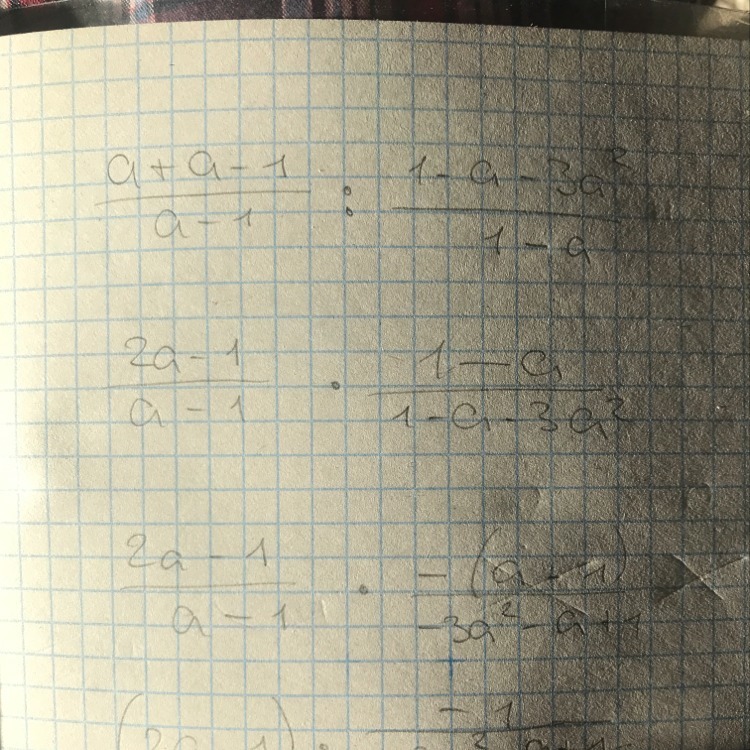 (a + a - 1)/(a - 1) : (1 - a - 3a²)/(1 - a)
(2a - 1)/(a - 1) · (1 - a)/(1 - a - 3a²)
(2a - 1)/(a - 1) · (-(a - 1))/(-3a² - a + 1)
(2a - 1) · -1